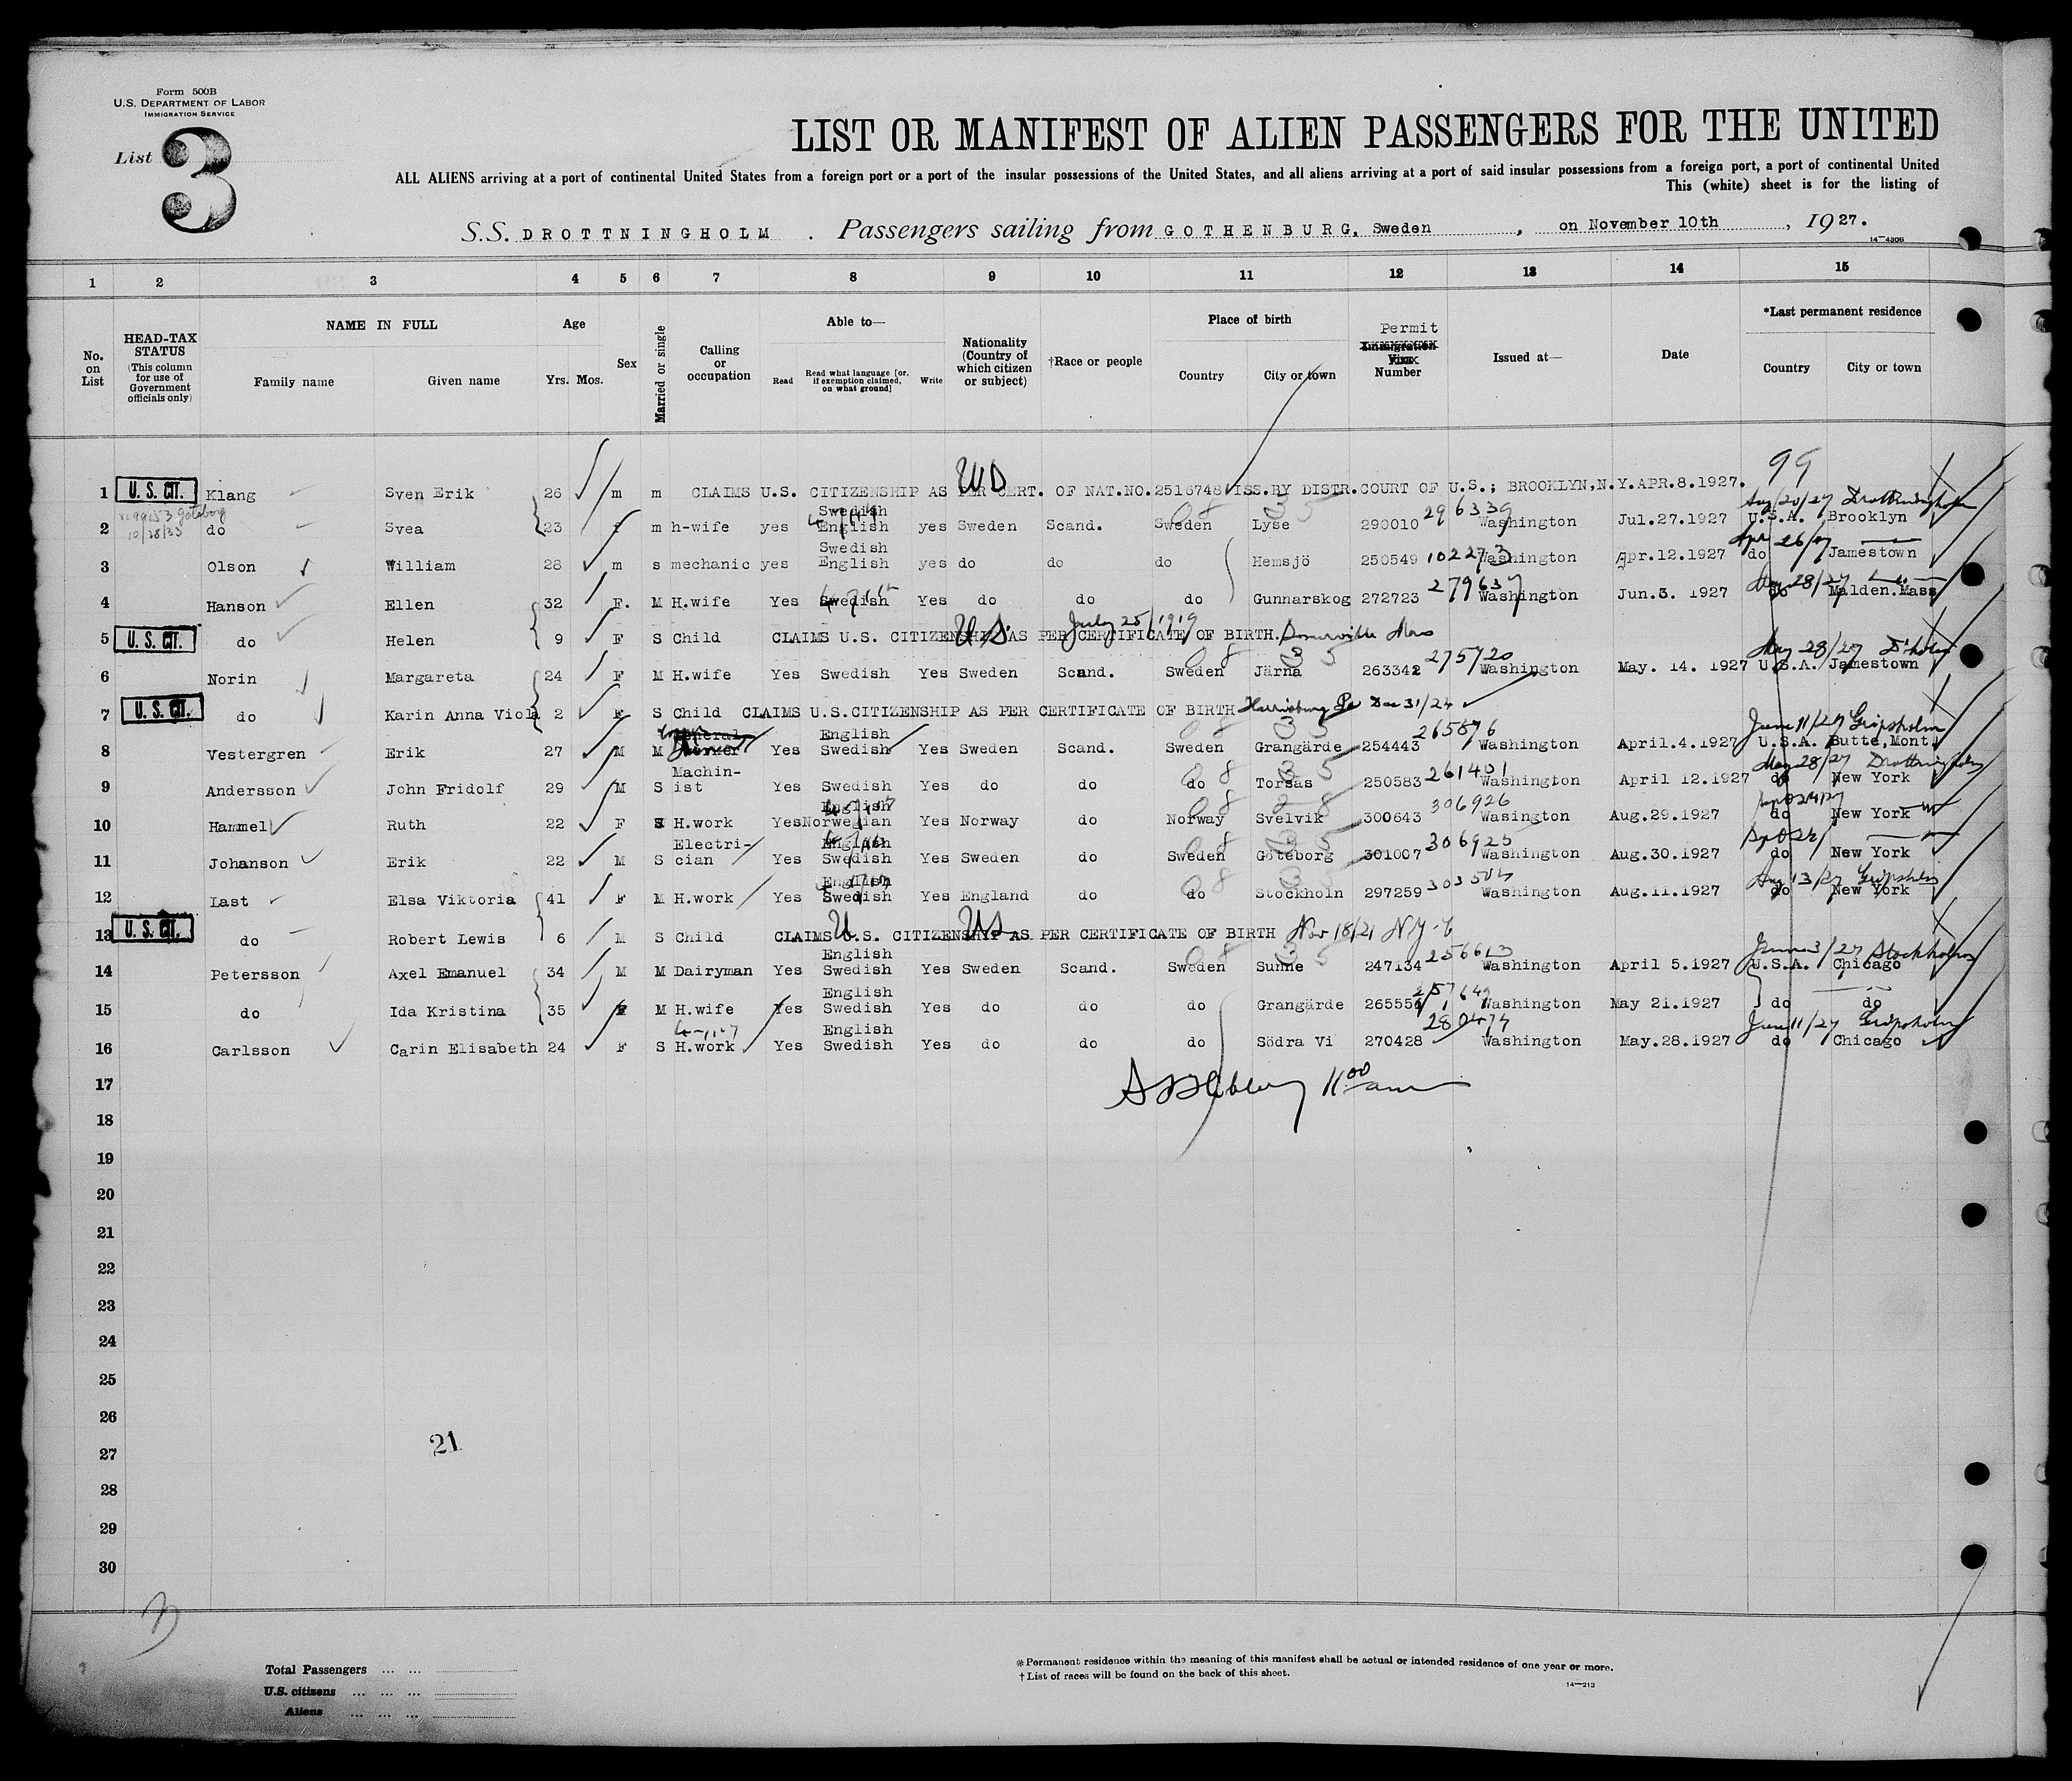 Form 500B
U.S. DEPARTMENT OF LABOR
IMMIGRATION SERVICE
List 3
LIST OR MANIFEST OF ALIEN PASSENGERS FOR THE UNITED
ALL ALIENS arriving at a port of continental United States from a foreign port or a port of the insular possessions of the United States, and all aliens arriving at a port of said insular possessions from a foreign port, a port of continental United
This (white) sheet is for the listing of
S.S. DROTTNINGHOLM . Passengers sailing from GOTHENBURG, Sweden , on November 10th , 1927.
14—4306
1 2 3 4 5 6 7 8 9 10 11 12 13 14 15
No. on List
HEAD-TAX STATUS (This column for use of Government officials only)
NAME IN FULL
Family name Given name
Age
Yrs. Mos.
Sex
Married or single
Calling or occupation
Able to—
Read Read what language [or, if exemption claimed, on what ground] Write
Nationality (Country of which citizen or subject)
†Race or people
Place of birth
Country City or town
Permit
Immigration Visa
Number
Issued at—
Date
*Last permanent residence
Country City or town
99
1 U. S. CIT. Klang Sven Erik 26 m m CLAIMS U.S. CITIZENSHIP AS PER CERT. OF NAT.NO.2516748 ISS.BY DISTR.COURT OF U.S.; BROOKLYN,N.Y.APR.8.1927.
10/28/33
2 do Svea 23 f m h-wife yes Swedish English yes Sweden Scand. Sweden Lyse 290010 296339 Washington Jul.27.1927 U.S.A. Brooklyn Aug/20/27 Drottningholm
3 Olson William 28 m s mechanic yes Swedish English yes do do do Hemsjö 250549 102273 Washington Apr.12.1927 do Jamestown Apr 26/27
4 Hanson Ellen 32 F. M H.wife Yes Swedish Yes do do do Gunnarskog 272723 279637 Washington Jun.3. 1927 do Malden.Mass May 28/27
5 U. S. CIT. do Helen 9 F S Child CLAIMS U.S. CITIZENSHIP AS PER CERTIFICATE OF BIRTH. July 25/1919 Somerville Mass
6 Norin Margareta 24 F M H.wife Yes Swedish Yes Sweden Scand. Sweden Järna 263342 275720 Washington May. 14. 1927 U.S.A. Jamestown May 28/27 D'holm
7 U. S. CIT. do Karin Anna Viola 2 F S Child CLAIMS U.S.CITIZENSHIP AS PER CERTIFICATE OF BIRTH Harrisburg Pa Dec 31/24
8 Vestergren Erik 27 M M General Worker Yes English Swedish Yes Sweden Scand. Sweden Grangärde 254443 265876 Washington April.4.1927 U.S.A. Butte,Mont. June 11/27 Gripsholm
9 Andersson John Fridolf 29 M S Machin-ist Yes Swedish Yes do do do Torsås 250583 261401 Washington April 12.1927 do New York May 28/27 Drottningholm
10 Hammel Ruth 22 F S H.work Yes English Norwegian Yes Norway do Norway Svelvik 300643 306926 Wasington Aug.29.1927 do New York
11 Johanson Erik 22 M S Electri-cian Yes English Swedish Yes Sweden do Sweden Göteborg 301007 306925 Washington Aug.30.1927 do New York
12 Last Elsa Viktoria 41 F M H.work Yes English Swedish Yes England do do Stockholn 297259 Washington Aug.11.1927 do New York Aug 13/27 Gripsholm
13 U. S. CIT. do Robert Lewis 6 M S Child CLAIMS U.S. CITIZENSHIP AS PER CERTIFICATE OF BIRTH Nov 18/21 N.Y.C
14 Petersson Axel Emanuel 34 M M Dairyman Yes English Swedish Yes Sweden Scand. Sweden Sunne 247134 256613 Washington April 5.1927 U.S.A. Chicago June 3/27 Stockholm
15 do Ida Kristina 35 F M H.wife Yes English Swedish Yes do do do Grangärde 265551 257649 Washington May 21.1927 do do
16 Carlsson Carin Elisabeth 24 F S H.work Yes English Swedish Yes do do do Södra Vi 270428 280477 Washington May.28.1927 do Chicago June 11/27 Gripsholm
17 11 00 am
18
19
20
21
22
23
24
25
26
27 21
28
29
30
Total Passengers ... ...
U.S. citizens ... ... ...
Aliens ... ... ...
* Permanent residence within the meaning of this manifest shall be actual or intended residence of one year or more.
† List of races will be found on the back of this sheet.
14—213